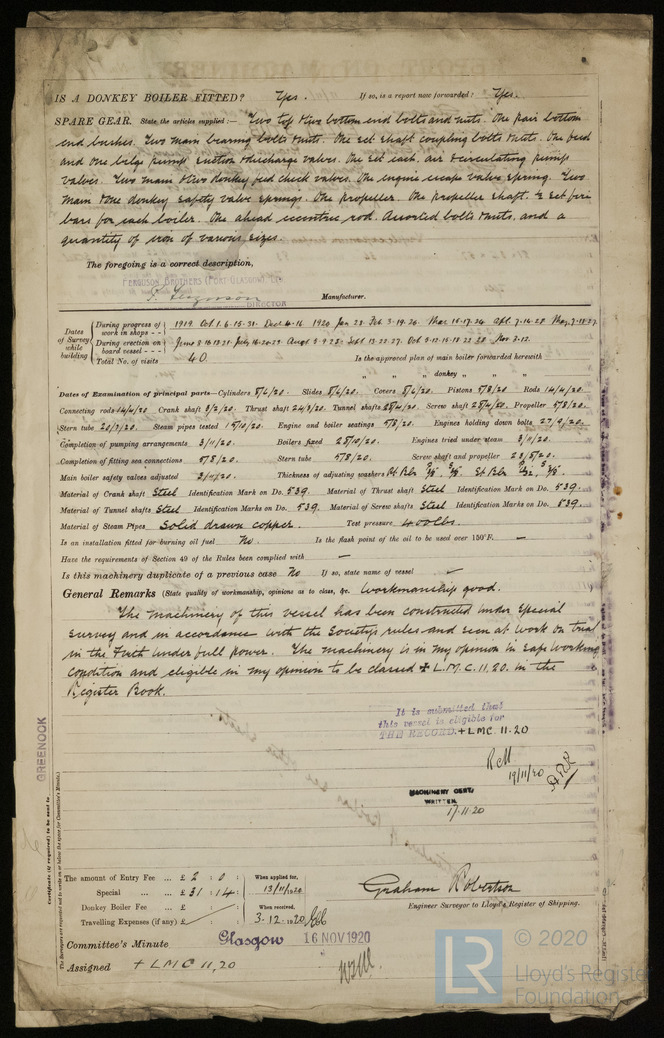 IS A DONKEY BOILER FITTED? Yes. If so, is a report now forwarded? Yes.
SPARE GEAR. State the articles supplied:— Two top & two bottom end bolts and nuts. One pair bottom
end bushes. Two main bearing bolts & nuts. One set shaft coupling bolts & nuts. One feed
and one bilge pump suction & discharge valves. One set each, air & circulating pump
valves. Two main & two donkey feed check valves. One engine escape valve spring. Two
main & one donkey safety valve springs. One propeller. One propeller shaft. ½ set fire
bars for each boiler. One ahead eccentric rod. Assorted bolts & nuts, and a
quantity of iron of various sizes.
The foregoing is a correct description,
FERGUSON BROTHERS (PORT GLASGOW) LTD
Ferguson DIRECTOR Manufacturer.
Dates of Survey while building
During progress of work in shops - - 1919 Oct 1.6.15.31. Dec 4.16 1920 Jan 23. Feb 3.19.26. Mar 16.17.24 Apl. 7.14.28 May 7.18.27.
During erection on board vessel - - - June 8.16.23. July 16.20.29. Aug 5.9.23. Sept 13.22.27. Oct 5.12.15.18.22.28 Nov. 3.12.
Total No. of visits 40 Is the approved plan of main boiler forwarded herewith
" " " donkey " " "
Dates of Examination of principal parts—Cylinders 8/6/20. Slides 8/6/20. Covers 8/6/20. Pistons 5/8/20. Rods 14/4/20.
Connecting rods 14/4/20 Crank shaft 3/2/20. Thrust shaft 24/3/20. Tunnel shafts 28/4/20. Screw shaft 28/4/20. Propeller 5/8/20.
Stern tube 20/7/20. Steam pipes tested 15/10/20. Engine and boiler seatings 5/8/20. Engines holding down bolts 27/9/20.
Completion of pumping arrangements 3/11/20. Boilers fixed 28/10/20. Engines tried under steam 3/11/20.
Completion of fitting sea connections 5/8/20. Stern tube 5/8/20. Screw shaft and propeller 23/8/20.
Main boiler safety valves adjusted 3/11/20. Thickness of adjusting washers
Material of Crank shaft Steel Identification Mark on Do. 539. Material of Thrust shaft Steel Identification Mark on Do. 539.
Material of Tunnel shafts Steel Identification Marks on Do. 539. Material of Screw shafts Steel Identification Marks on Do. 539.
Material of Steam Pipes Solid drawn copper. Test pressure 400 lbs.
Is an installation fitted for burning oil fuel No. Is the flash point of the oil to be used over 150°F. —
Have the requirements of Section 49 of the Rules been complied with —
Is this machinery duplicate of a previous case No If so, state name of vessel —
General Remarks (State quality of workmanship, opinions as to class, &c. Workmanship good.
The machinery of this vessel has been constructed under special
survey and in accordance with the Society's rules and seen at work on trial
in the Firth under full power. The machinery is in my opinion in safe working
condition and eligible in my opinion to be classed + L.M.C. 11.20. in the
Register Book.
It is submitted that
this vessel is eligible for
THE RECORD. + LMC 11.20
19/11/20
MACHINERY CERT.
WRITTEN
17.11.20
GREENOCK
Certificate (if required) to be sent to
The Surveyors are requested not to write on or below the space for Committee's Minute.
The amount of Entry Fee ... £ 2 : 0 :
Special ... ... £ 31 : 14 :
Donkey Boiler Fee ... £ :
Travelling Expenses (if any) £ :
When applied for, 13/11/1920
When received, 3.12.1920
Graham Robertson
Engineer Surveyor to Lloyd's Register of Shipping.
Committee's Minute Glasgow 16 NOV 1920
Assigned + LMC 11,20
LR © 2020
Lloyd's Register
Foundation